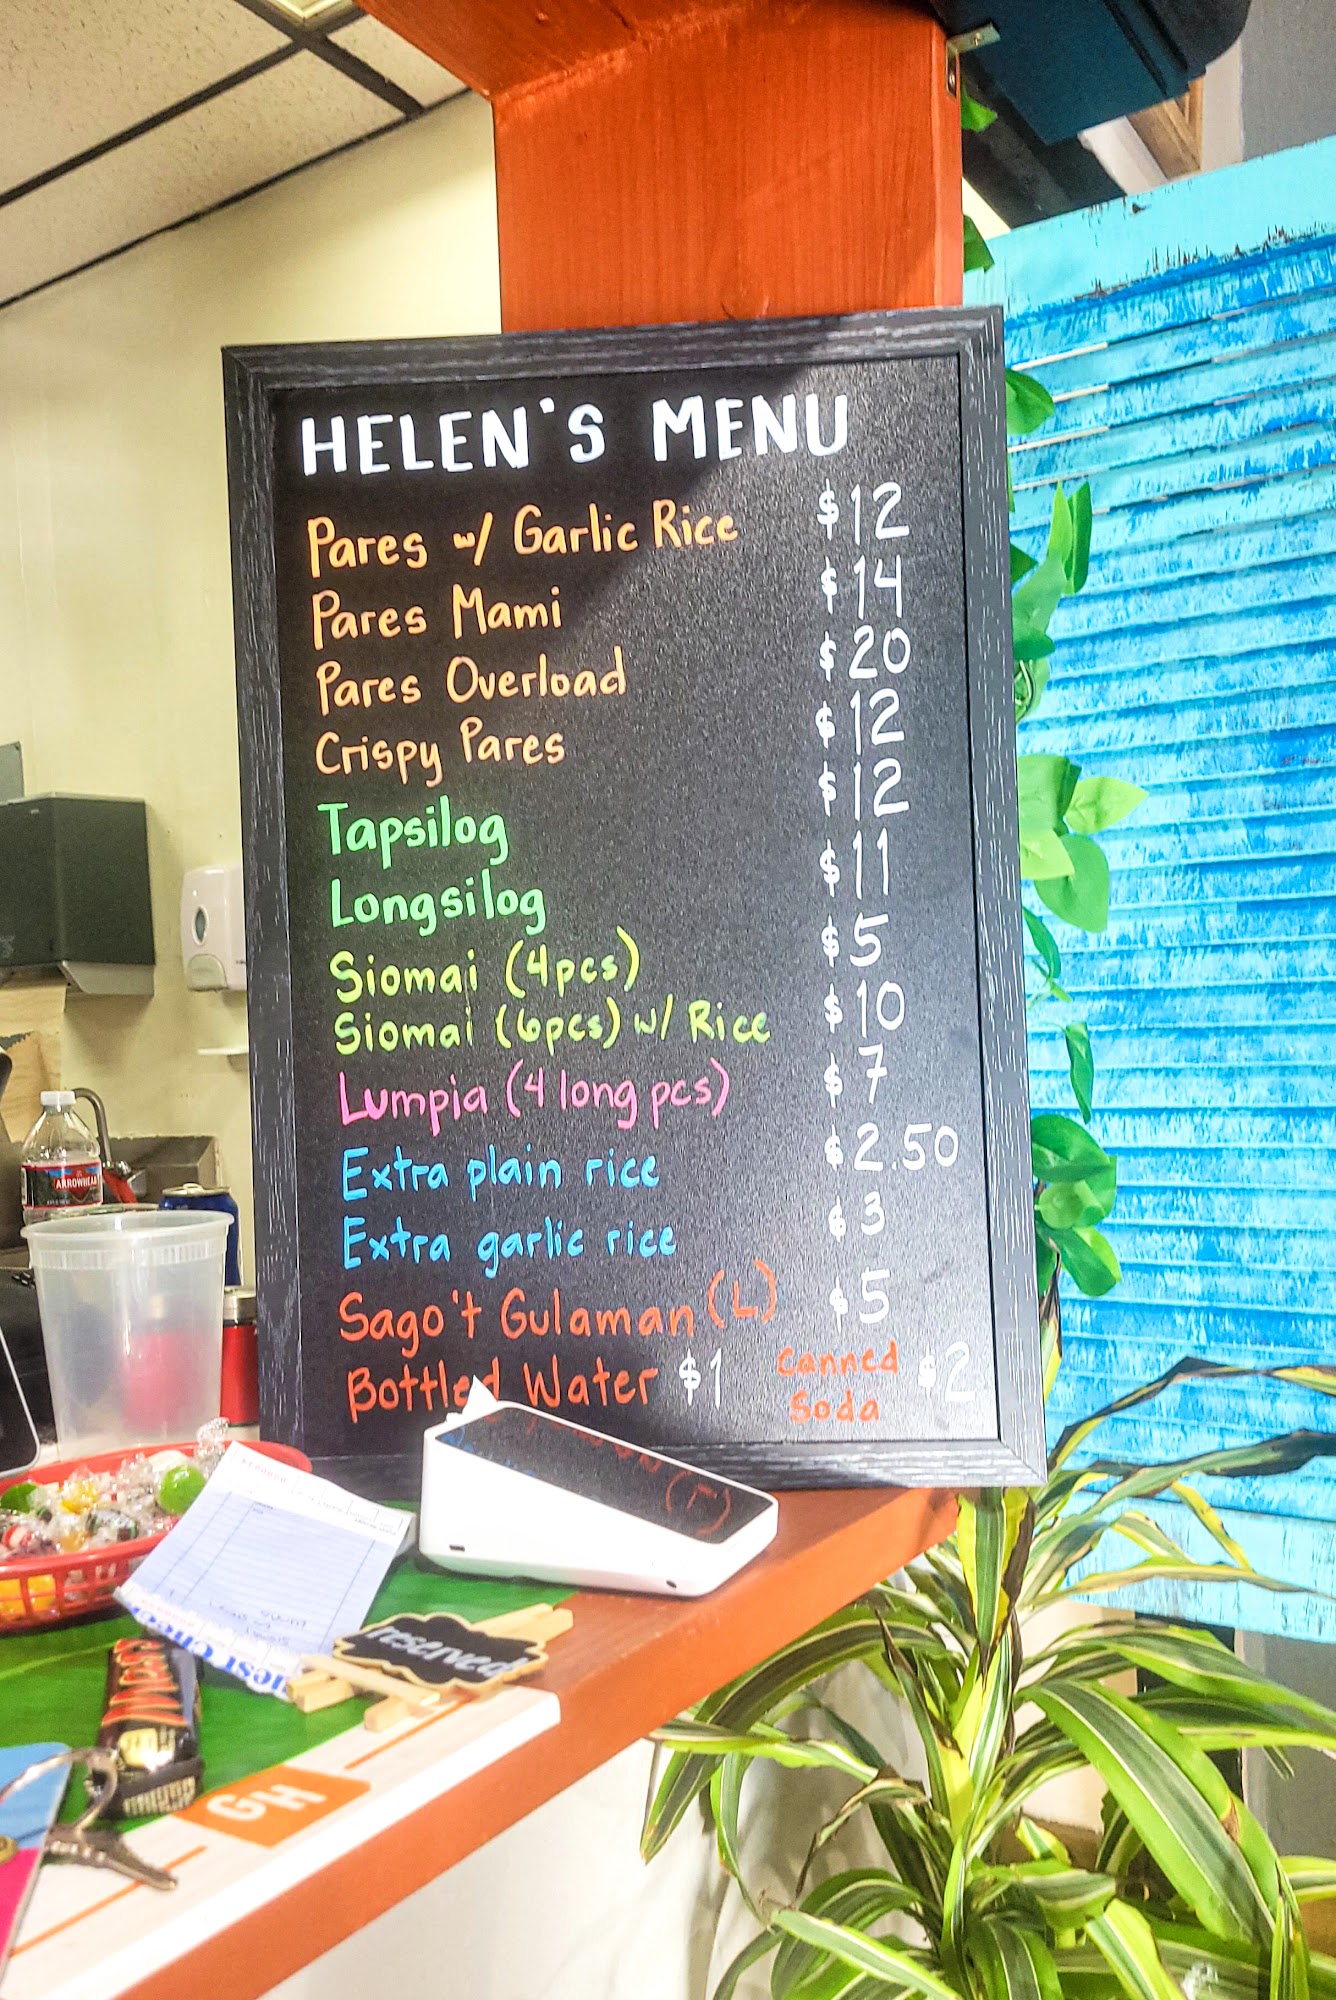 HELEN'S MENU
Pares w/ Garlic Rice $12
Pares Mami $14
Pares Overload $20
Crispy Pares $12
Tapsilog $12
Longsilog $11
Siomai (4pcs) $5
Siomai (6pcs) w/ Rice $10
Lumpia (4 long pcs) $7
Extra plain rice $2.50
Extra garlic rice $3
Sago't Gulaman (L) $5
Bottled Water $1 Canned Soda $2
ARROWHEAD
reserved
GH